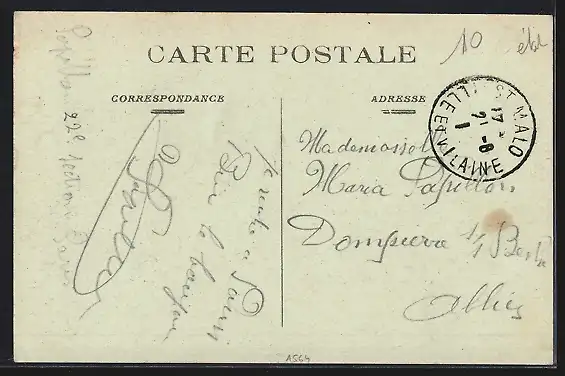 CARTE POSTALE
10
CORRESPONDANCE
ADRESSE
ST MALO
17
21 - 8
1
ILLE ET VILAINE
Mademoiselle
Maria Papillon
Dompierre s/s Besbre
Allier
Je rentre a
Bien le bonjour
Papillon 22e section
1564